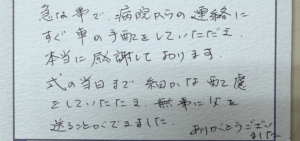 急な事で、病院からの連絡に
すぐ車の手配をしていただき
本当に感謝しております。
式の当日まで細かな配慮
をしていただき、無事に父を
送ることができました。
ありがとうござい
ました